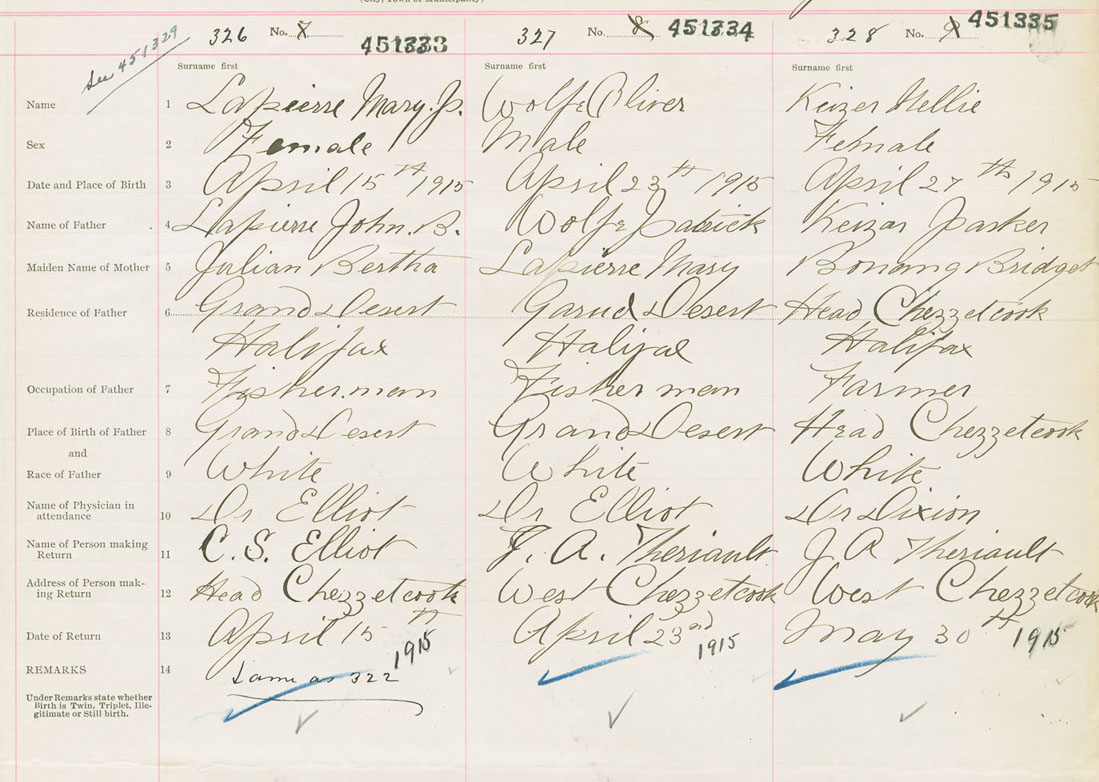 (City, Town or Municipality)
See 451329
326 No. 7 451333
327 No. 8 451334
328 No. 9 451335
Surname first Surname first Surname first
Name 1 Lapierre Mary. J. Wolfe Oliver Keizer Nellie
Sex 2 Female Male Female
Date and Place of Birth 3 April 15th 1915 April 23th 1915 April 27th 1915
Name of Father 4 Lapierre John. B. Wolfe Patrick Keizar Parker
Maiden Name of Mother 5 Julian Bertha Lapierre Mary Bonang Bridget
Residence of Father 6 Grand Desert Garud Desert Head Chezzetcook
Halifax Halifax Halifax
Occupation of Father 7 Fisherman Fisherman Farmer
Place of Birth of Father 8 Grand Desert Grand Desert Head Chezzetcook
and
Race of Father 9 White White White
Name of Physician in
attendance 10 Dr Elliot Dr Elliot Dr Dixion
Name of Person making
Return 11 C. S. Elliot J. A. Theriault J A Theriault
Address of Person mak-
ing Return 12 Head Chezzetcook West Chezzetcook West Chezzetcook
Date of Return 13 April 15th 1915 April 23nd 1915 May 30th 1915
REMARKS 14 Same as 322
Under Remarks state whether
Birth is Twin, Triplet, Ille-
gitimate or Still birth.